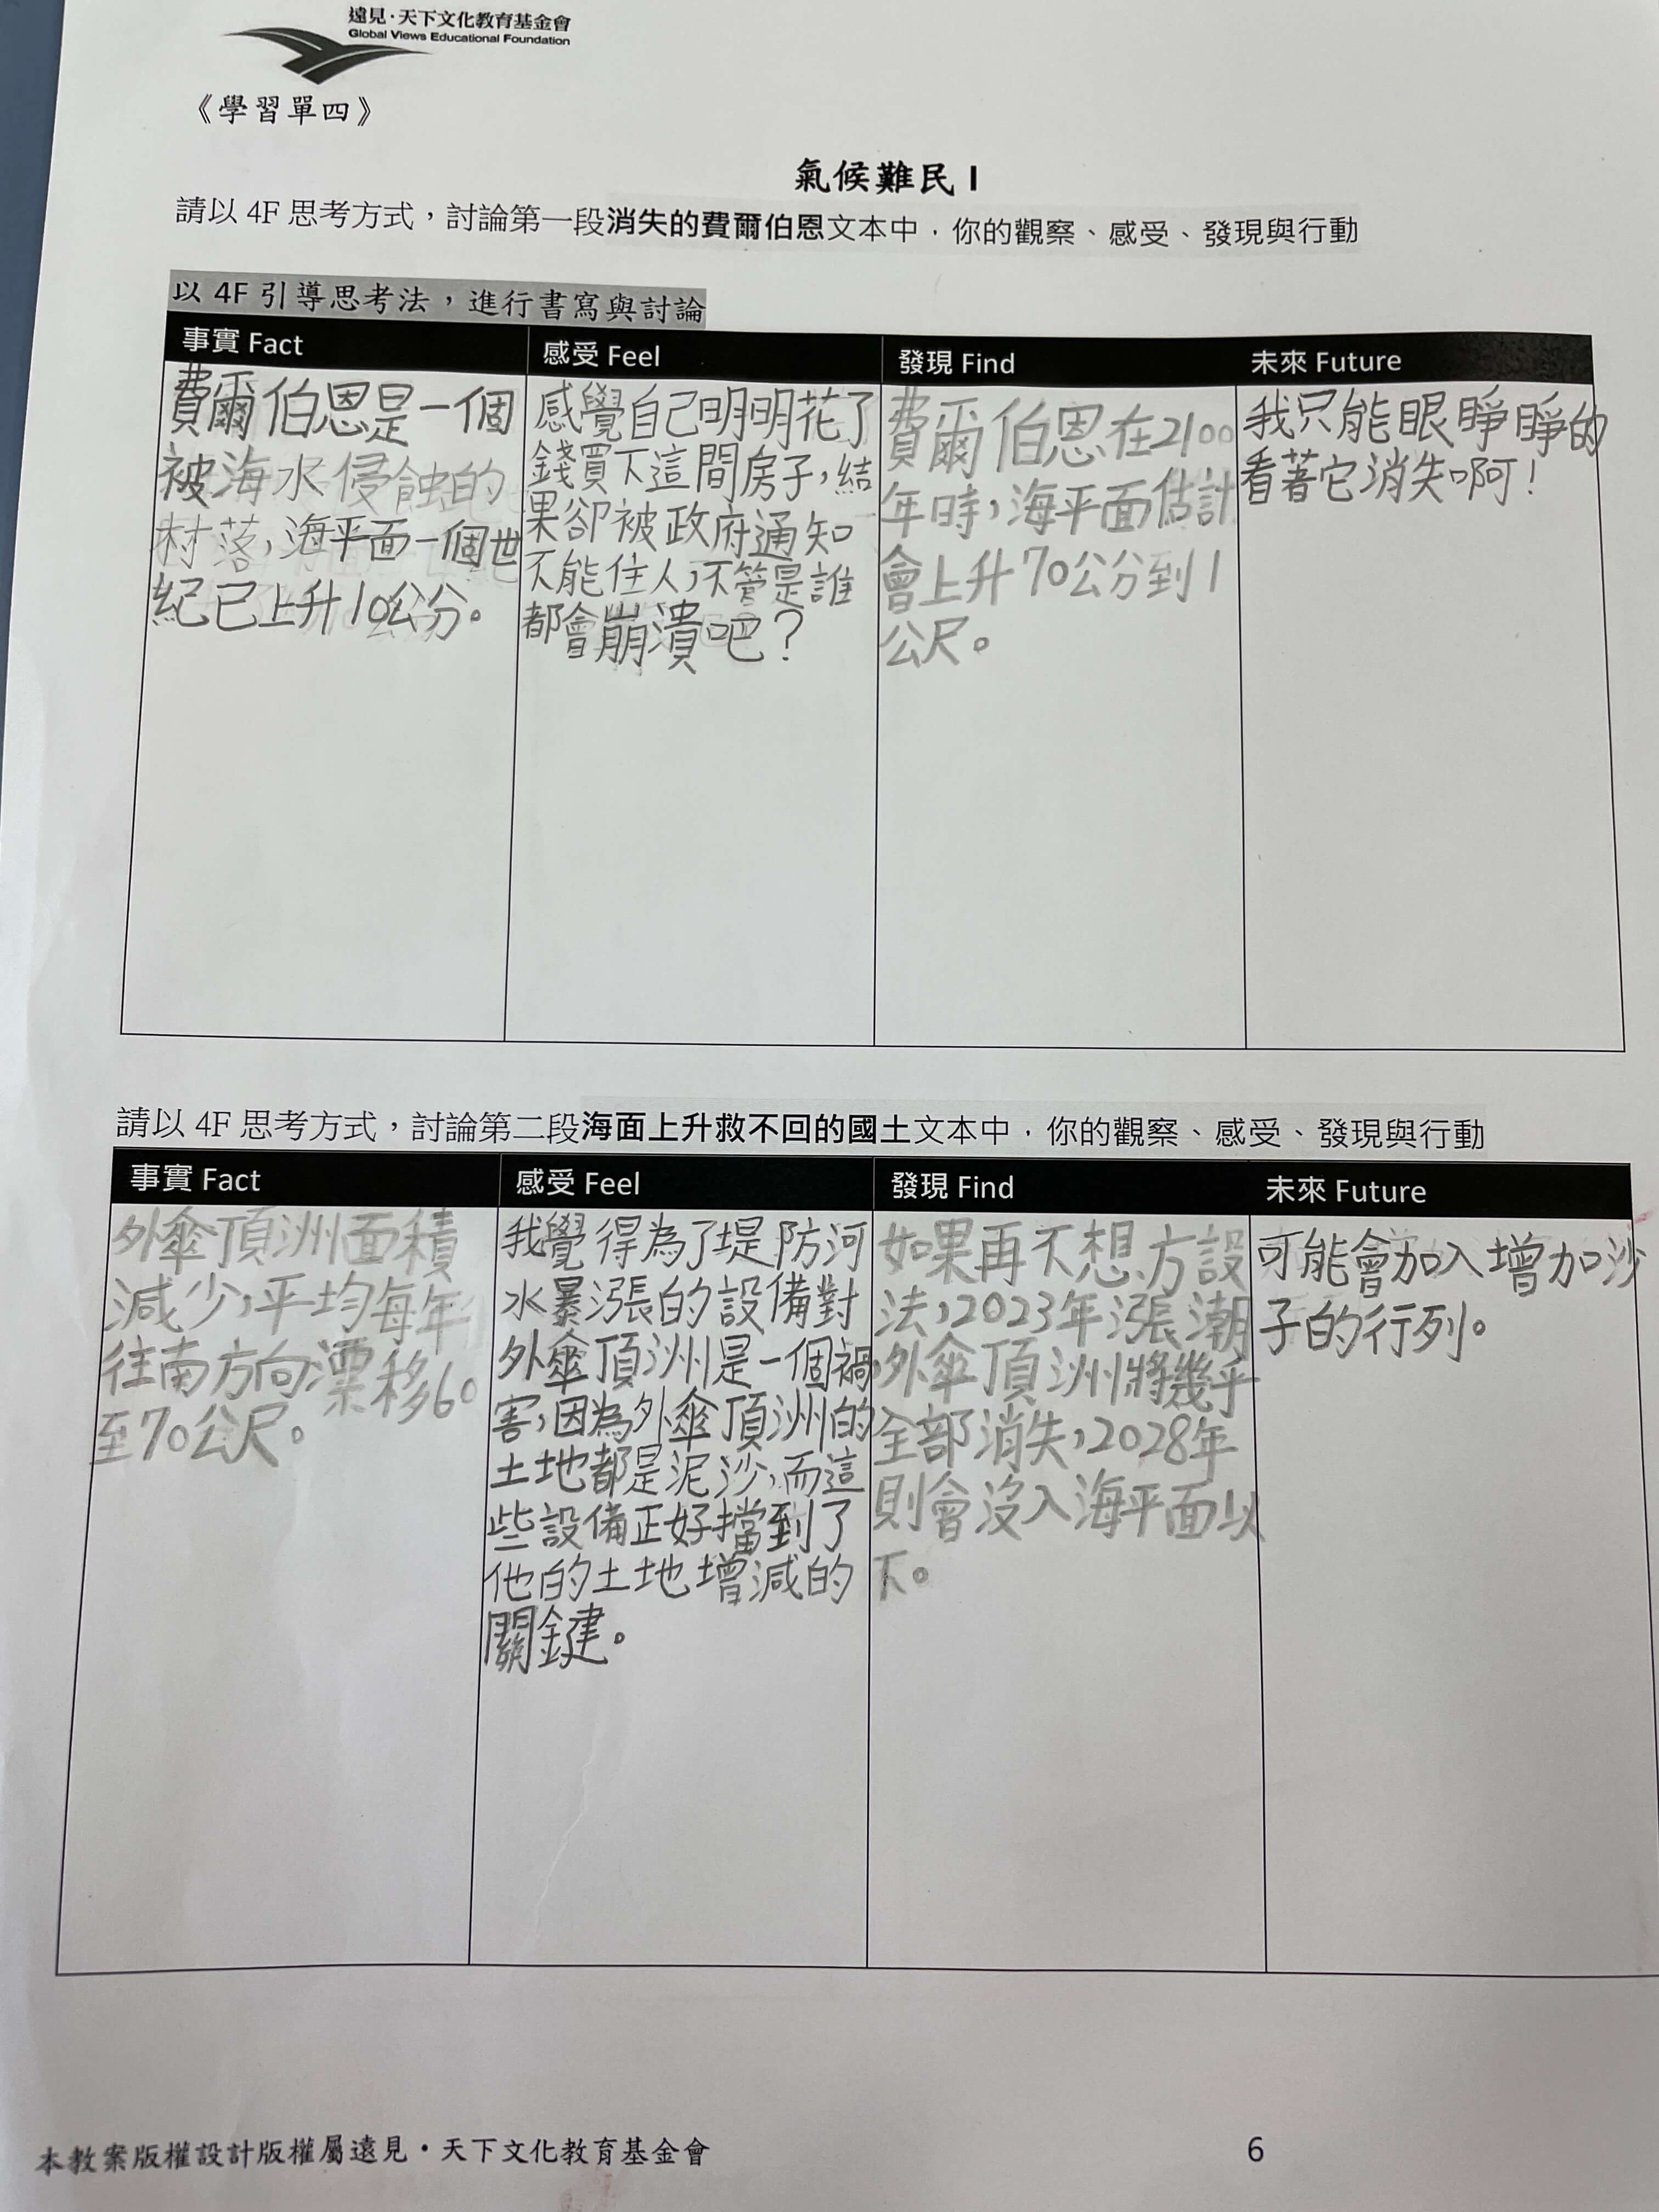 遠見·天下文化教育基金會
Global Views Educational Foundation
《學習單四》
氣候難民 I
請以 4F 思考方式，討論第一段消失的費爾伯恩文本中，你的觀察、感受、發現與行動
以 4F 引導思考法，進行書寫與討論
事實 Fact
費爾伯恩是一個
被海水侵蝕的
村落，海平面一個世
紀已上升10公分。
感受 Feel
感覺自己明明花了
錢買下這間房子，結
果卻被政府通知
不能住人，不管是誰
都會崩潰吧？
發現 Find
費爾伯恩在2100
年時，海平面估計
會上升70公分到1
公尺。
未來 Future
我只能眼睜睜的
看著它消失啊！
請以 4F 思考方式，討論第二段海面上升救不回的國土文本中，你的觀察、感受、發現與行動
事實 Fact
外傘頂洲面積
減少，平均每年
往南方向漂移60
至70公尺。
感受 Feel
我覺得為了堤防河
水暴漲的設備對
外傘頂洲是一個禍
害，因為外傘頂洲的
土地都是泥沙，而這
些設備正好擋到了
他的土地增減的
關鍵。
發現 Find
如果再不想方設
法，2023年漲潮，
外傘頂洲將幾乎
全部消失，2028年
則會沒入海平面以
下。
未來 Future
可能會加入增加沙
子的行列。
本教案版權設計版權屬遠見·天下文化教育基金會
6